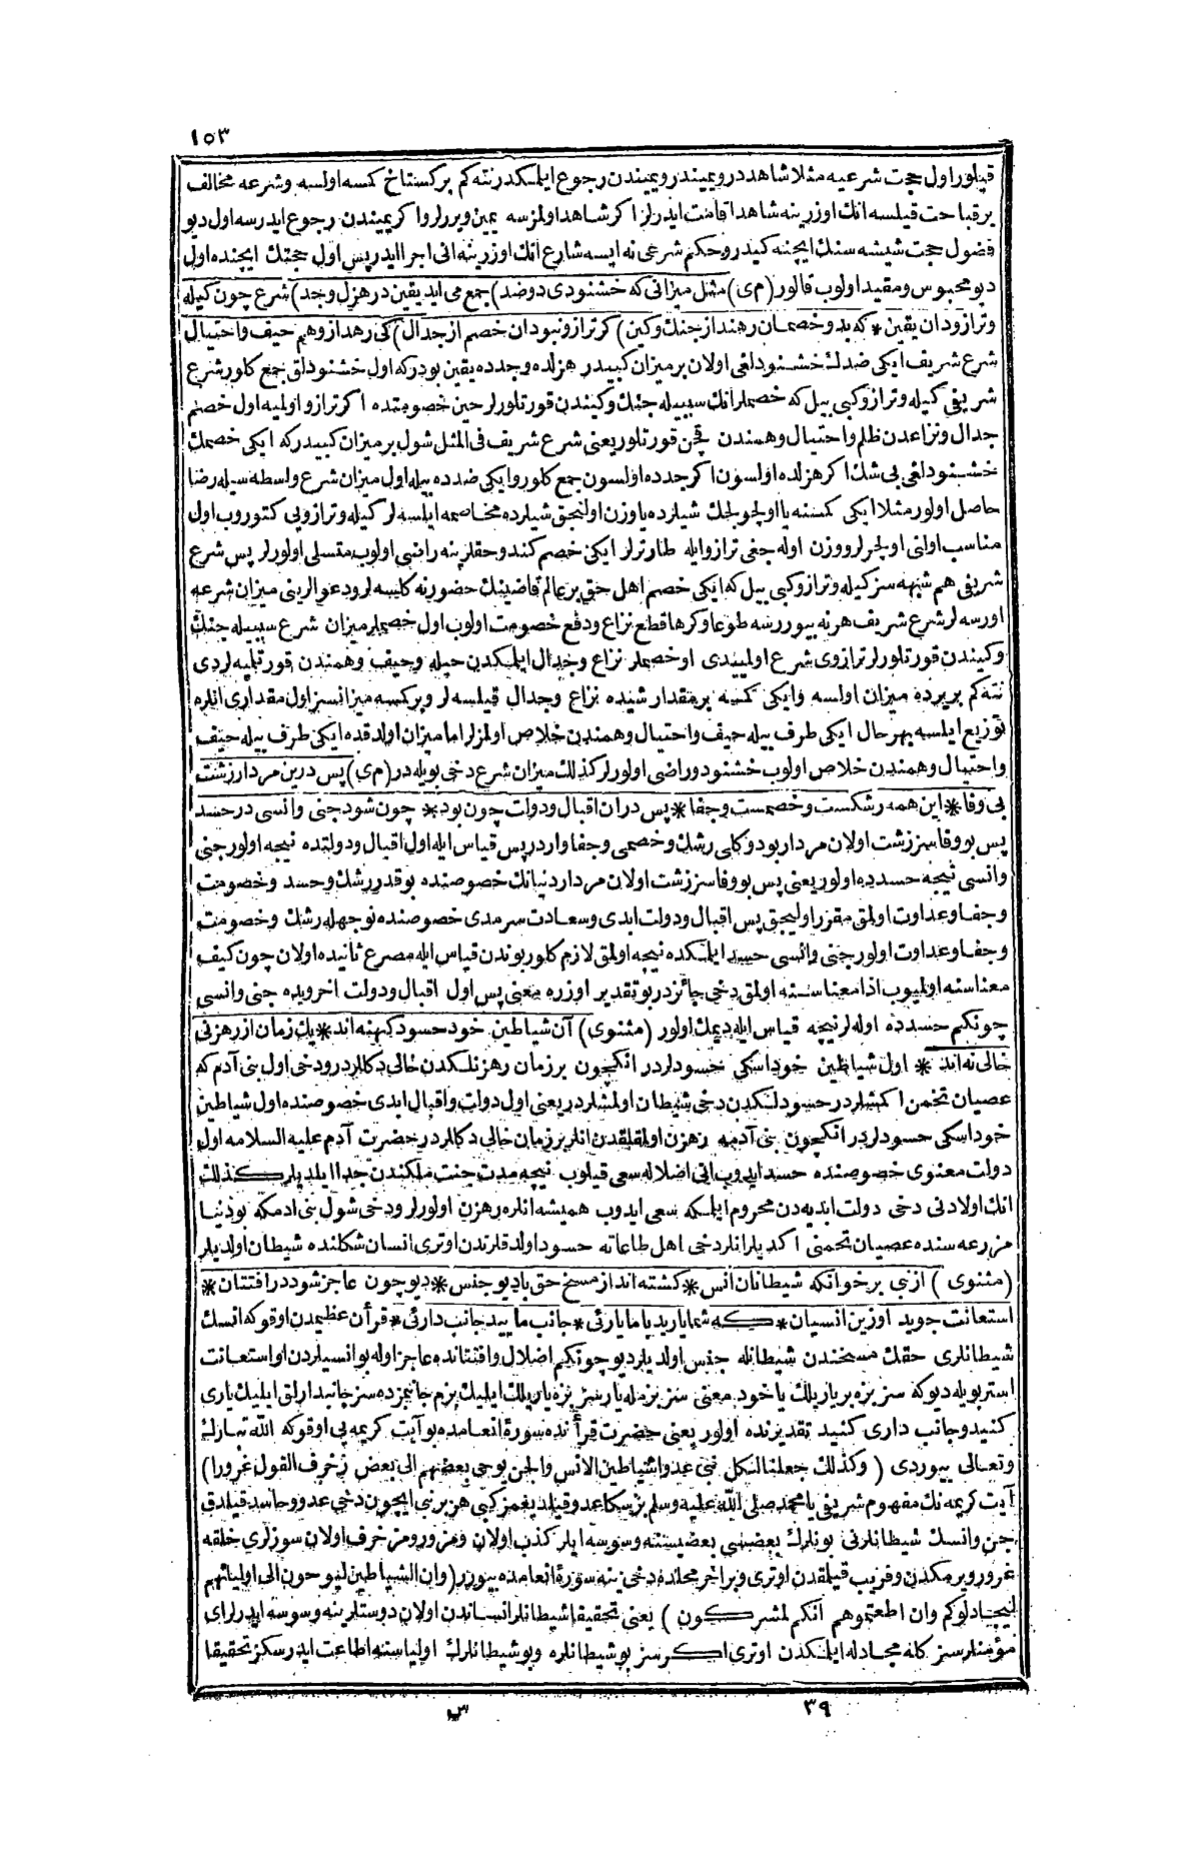 ١٥٣
قیلور اول حجت شرعیه مثلا شاهد در و یمیندر و یمیندن رجوع ایلمکدر نته کم بر کستاخ کمسه اولسه و شرعه مخالف
بر قباحت قیلسه انك اوزرینه شاهد اقامت ایدرلر اکر شاهد اولمزسه یمین ویررلر و اکر یمیندن رجوع ایدرسه اول دیو
فضول حجت شیشه سنك ایچنه کیدر و حکم شرعی نه ایسه شارع انك اوزرینه انی اجرا ایدر پس اول حجتك ایچنده اول
دیو محبوس و مقید اولوب قالور (م ی) مثل میزانی که خشنودی دو ضد) جمع می اید یقین در هزل و جد) شرع چون کیله
و ترازو دان یقین * که بدو خصمان رهند از جنك و کین) کر ترازو نبود ان خصم از جدال) کی رهد از وهم حیف و احتیال
شرع شریف ایکی ضدك خشنودلغی اولان بر میزان کبیدر هزلده و جدده یقین بودر که اول خشنودلق جمع کلور شرع
شریفی کیله و ترازو کبی بیل که خصملر انك سببیله جنك و کیندن قورتلورلر حین خصومتده اکر ترازو اولمیه اول خصم
جدال و نزاعدن ظلم و احتیال و همندن قچن قورتلور یعنی شرع شریف فی المثل شول بر میزان کبیدر که ایکی خصمك
خشنودلغی بی شك اکر هزلده اولسون اکر جدده اولسون جمع کلور و ایکی ضدده بیله اول میزان شرع واسطه سیله رضا
حاصل اولور مثلا ایکی کمسنه یا اولچولجك شیلرده یا وزن اولنجق شیلرده مخاصمه ایلسه لر کیله و ترازویی کتوروب اول
مناسب اولنی اولچرلر و وزن اوله جغی ترازو ایله طارتارلر ایکی خصم کندو حقلرینه راضی اولوب متسلی اولورلر پس شرع
شریفی هم شبهه سز کیله و ترازو کبی بیل که ایکی خصم اهل حق بر عالم قاضینك حضورینه کلیسه لر و دعوالرینی میزان شرعه
اورسه لر شرع شریف هر نه بیوررسه طوعا و کرها قطع نزاع و دفع خصومت اولوب اول خصملر میزان شرع سببیله جنك
و کیندن قورتلورلر ترازوی شرع اولمیدی او خصملر نزاع و جدال ایلمکدن حیله و حیف و همندن قورتلمیه لردی
نته کم بر یرده میزان اولسه و ایکی کمسه بر مقدار شیده نزاع و جدال قیلسه لر و بر کمسه میزانسز اول مقداری انلره
توزیع ایلسه بهر حال ایکی طرف بیله حیف و احتیال و همندن خلاص اولمزلر اما میزان اولدقده ایکی طرف بیله حیف
و احتیال و همندن خلاص اولوب خشنود و راضی اولورلر کذلك میزان شرع دخی بویله در (م ی) پس درین مردار زشت
بی وفا * این همه رشکست و خصمست و جفا * پس دران اقبال و دولت چون بود * چون شود جنی و انسی در حسد
پس بو وفاسز زشت اولان مرداربو دکلی رشك و خصمی و جفا واردر پس قیاس ایله اول اقبال و دولتده نیجه اولور جنی
و انسی نیجه حسدده اولور یعنی پس بو وفاسز زشت اولان مردار دنیانك خصوصنده بو قدر رشك و حسد و خصومت
و جفا و عداوت اولمق مقرر اولیجق پس اقبال و دولت ابدی و سعادت سرمدی خصوصنده نوجهله رشك و خصومت
و جفا و عداوت اولور جنی و انسی حسد ایلمکده نیجه اولمق لازم کلور بوندن قیاس ایله مصرع ثانیده اولان چون کیف
معناسنه اولمیوب اذا معناسنه اولمق دخی جائزدر بو تقدیر اوزره معنی پس اول اقبال و دولت اخرویده جنی و انسی
چونکم حسدده اوله لر نیجه قیاس ایله دیمك اولور (مثنوی) آن شیاطین خود حسود کهنه اند * یك زمان از رهزنی
خالی نه اند * اول شیاطین خود اسکی حسودلردر انکچون بر زمان رهزنلکدن خالی دکللردر و دخی اول بنی آدم که
عصیان تخمن اکمشلردر حسودلكدن دخی شیطان اولمشلردر یعنی اول دولت و اقبال ابدی خصوصنده اول شیاطین
خود اسکی حسودلردر انکچون بنی آدمه رهزن اولمقلقدن انلر بر زمان خالی دکللردر حضرت آدم علیه السلامه اول
دولت معنوی خصوصنده حسد ایدوب انی اضلاله سعی قیلوب نیجه مدت جنت ملکندن جدا ایلدیلر کذلك
انك اولادنی دخی دولت ابدیه دن محروم ایلمکه سعی ایدوب همیشه انلره رهزن اولورلر و دخی شول بنی ادمکه بو دنیا
مزرعه سنده عصیان تخمنی اکدیلر انلر دخی اهل طاعاته حسود اولدقلرندن اوتری انسان شکلنده شیطان اولدیلر
(مثنوی) از نبی بر خوانکه شیطانان انس * کشته اند از مسخ حق با دیو جنس * دیو چون عاجز شود در افتتان *
استعانت جوید او زین انسیان * که شما یارید با ما یارئی * جانب مایید جانب دارئی * قرآن عظیمدن اوقو که انسك
شیطانلری حقك مسخندن شیطانله جنس اولدیلر دیو چونکم اضلال و افتتانده عاجز اوله بو انسیلردن او استعانت
استر بویله دیو که سز بزه بر یارلك یا خود معنی سز بزمله یارسز بزه یارلك ایلیك بزم جانبمزده سز جانبدارلق ایلیك یاری
کنید و جانب داری کنید تقدیرنده اولور یعنی حضرت قرآنده سورۀ انعامده بو آیت کریمه یی اوقو که الله تبارك
وتعالی بیوردی (وکذلك جعلنا لکل نبی عدوا شیاطین الانس والجن یوحی بعضهم الی بعض زخرف القول غرورا)
آیت کریمه نك مفهوم شریفی یا محمد صلی الله علیه وسلم بز سکا عدو قیلدیغمز کبی هر بر نبی ایچون دخی عدو و حاسد قیلدق
جن و انسك شیطانلرنی بونلرك بعضیسی بعضیسنه وسوسه ایلر کذب اولان و مزور و مزخرف اولان سوزلری خلقه
غرور ویرمکدن و فریب قیلمقدن اوتری و بر آخر محلده دخی ینه سورۀ انعامده بیورر (وان الشیاطین لیوحون الی اولیائهم
لیجادلوکم وان اطعتموهم انکم لمشرکون) یعنی تحقیقا شیطانلر انساندن اولان دوستلرینه وسوسه ایدرلر ای
مؤمنلر سزکله مجادله ایلمکدن اوتری اکر سز بو شیطانلره و بو شیطانلرك اولیاسنه اطاعت ایدرسکز تحقیقا
٣٩ س